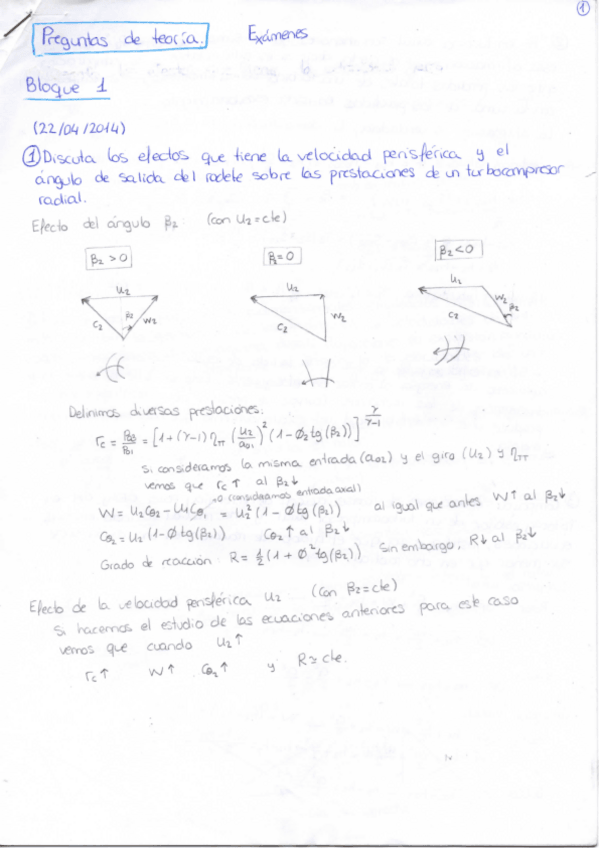 1
Preguntas de teoría. Exámenes
Bloque 1
(22/04/2014)
① Discuta los efectos que tiene la velocidad perisférica y el
ángulo de salida del rodete sobre las prestaciones de un turbocompresor
radial.
Efecto del ángulo β₂: (con U₂=cte)
β₂ > 0 β₂ = 0 β₂ < 0
U₂ U₂ U₂
C₂ β₂ W₂ C₂ W₂ C₂ W₂ β₂
Definimos diversas prestaciones.
rc = P03/P01 = [1+(γ-1) ηTT (U₂/a01)² (1-Ø₂ tg(β₂))]^(γ/(γ-1))
Si consideramos la misma entrada (a02) y el giro (U₂) y ηTT
vemos que rc↑ al β₂↓
0 (consideramos entrada axial)
W = U₂Cθ2 - U₁Cθ1 = U₂² (1-Øtg(β₂)) al igual que antes W↑ al β₂↓
Cθ2 = U₂ (1-Øtg(β₂)) Cθ2↑ al β₂↓
Grado de reacción: R = ½ (1+Ø² tg(β₂)) Sin embargo, R↓ al β₂↓
Efecto de la velocidad perisférica U₂ (con β₂=cte)
Si hacemos el estudio de las ecuaciones anteriores para este caso
vemos que cuando U₂↑
rc↑ W↑ Cθ2↑ y R≃cte.